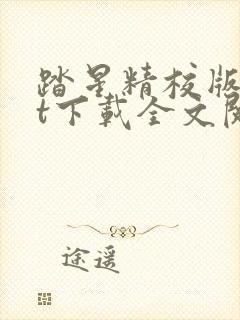 踏星精校版
t下载全文阅
途遥